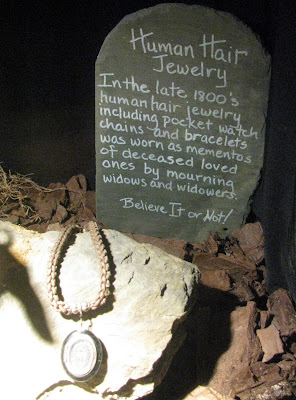 Human Hair
Jewelry
In the late 1800's
human hair jewelry
including pocket watch
chains and bracelets
was worn as mementos
of deceased loved
ones by mourning
widows and widowers.
Believe It or Not!